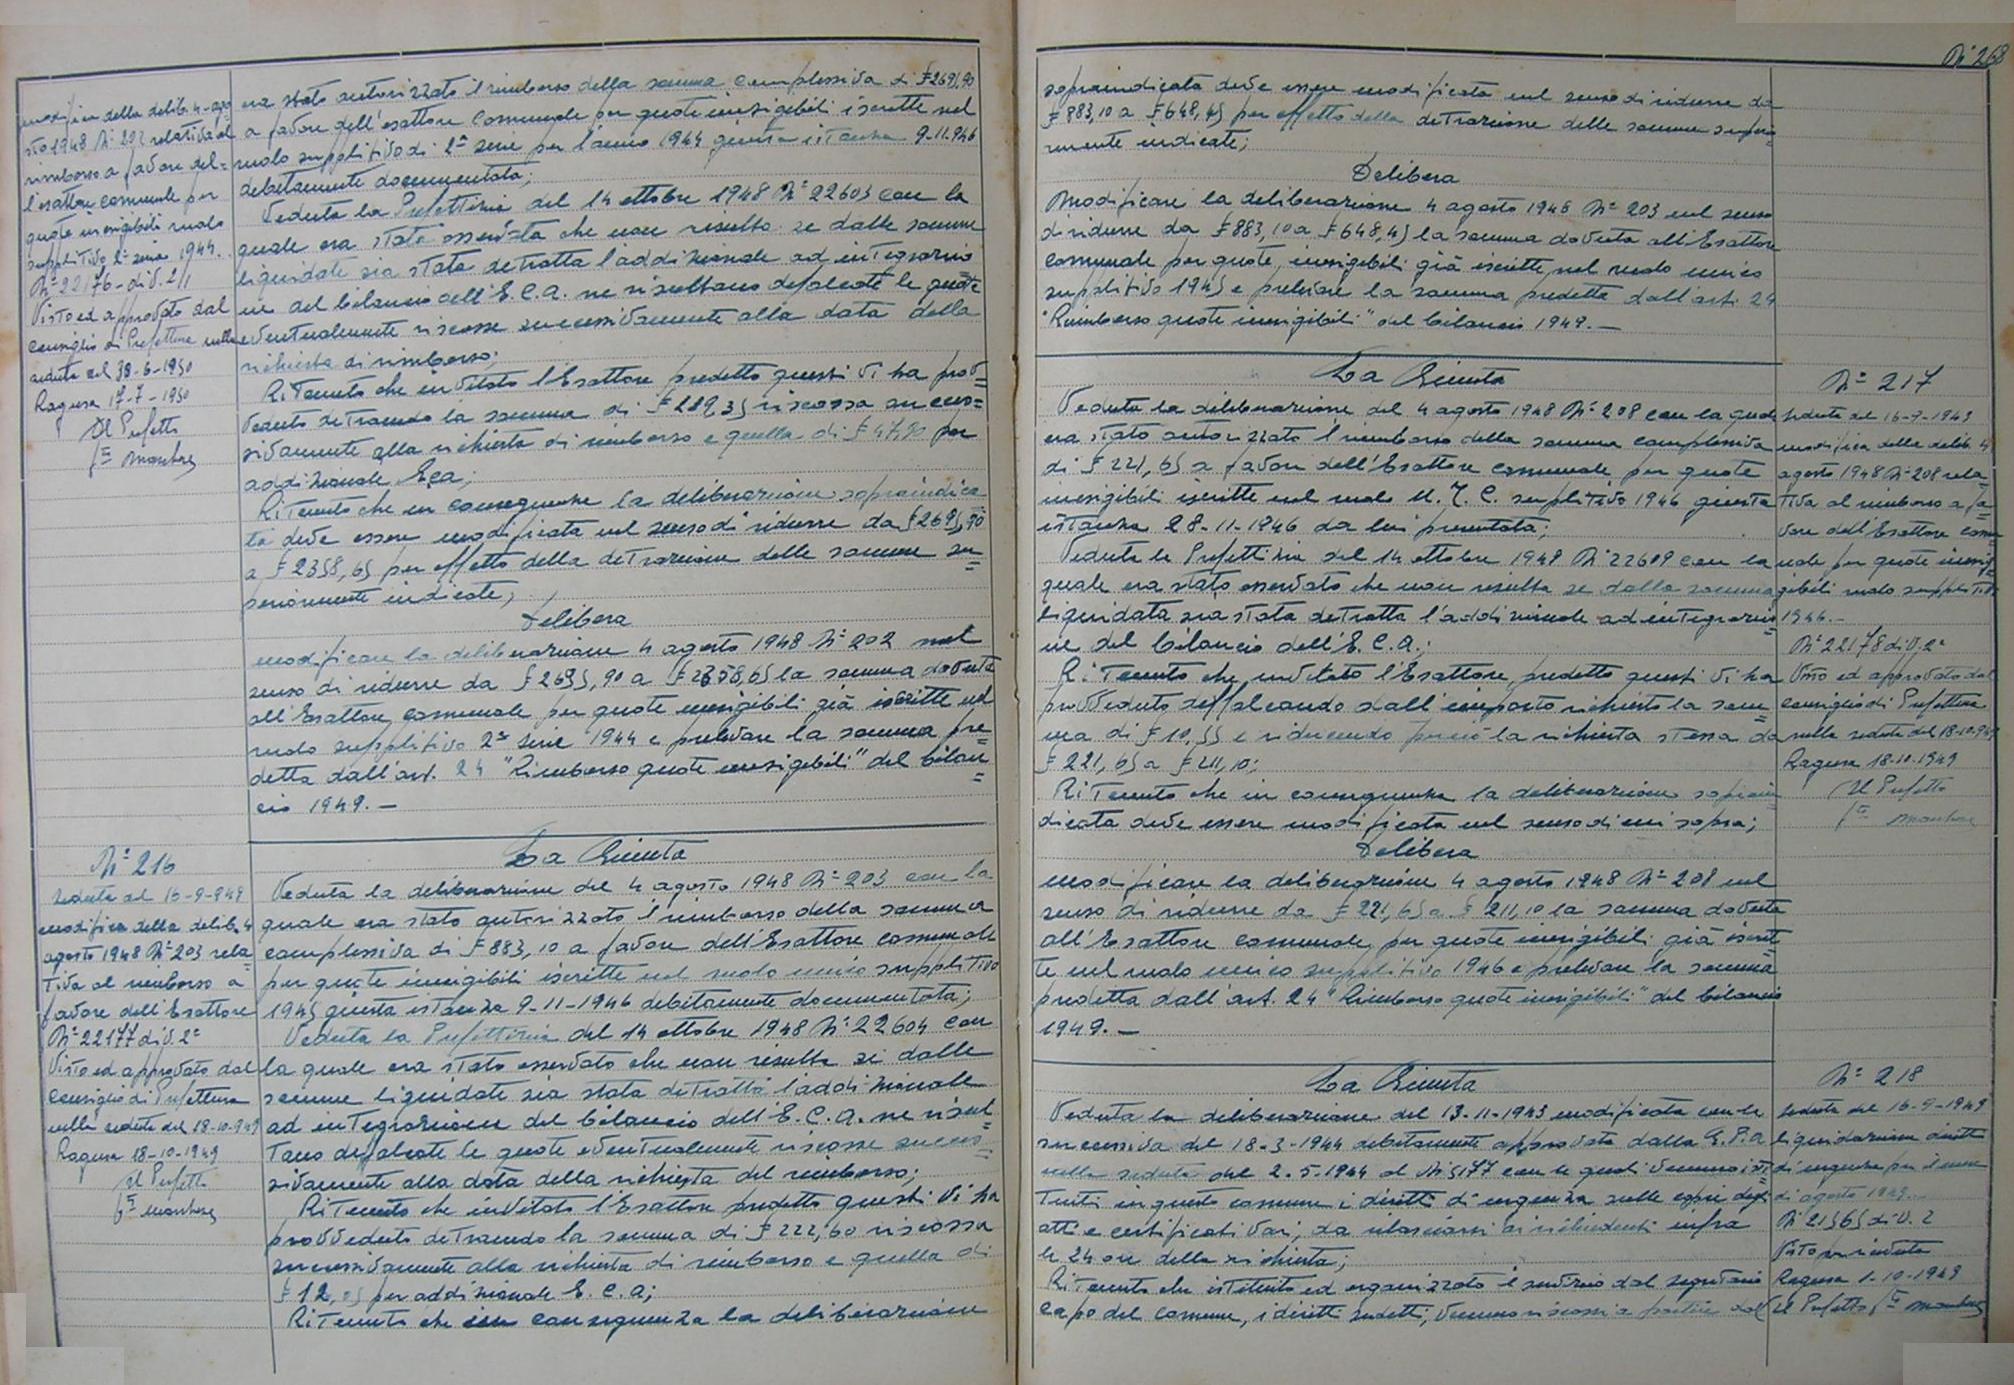 modifica della delib. 4 ago
sto 1948 N° 202 relativa al
rimborso a favore del=
l'esattore comunale per
quote inesigibili ruolo
suppletivo 2ª serie 1944.
N° 22176 - div. 2/I
Visto ed approvato dal
Consiglio di Prefettura nella
seduta del 30-6-1950
Ragusa 17-7-1950
Il Prefetto
f.to
era stato autorizzato il rimborso della somma complessiva di £ 2695,90
a favore dell'esattore comunale per quote inesigibili iscritte nel
ruolo suppletivo di 2ª serie per l'anno 1944 giusta istanza 9-11-946
debitamente documentata;
Veduta la Prefettizia del 14 ottobre 1948 N° 22603 con la
quale era stato osservato che non risulta se dalle somme
liquidate sia stata detratta l'addizionale ad integrazio
ne del bilancio dell'E.C.A. ne risultano defalcate le quote
eventualmente riscosse successivamente alla data della
richiesta di rimborso;
Ritenuto che invitato l'Esattore predetto questi vi ha prov=
veduto detraendo la somma di £ 289,35 riscossa succes=
sivamente alla richiesta di rimborso e quella di £ 47,90 per
addizionale Eca;
Ritenuto che in conseguenza la deliberazione sopraindica
ta deve essere modificata nel senso di ridurre da £ 2695,90
a £ 2358,65 per effetto della detrazione delle somme su=
periormente indicate;
Delibera
modificare la deliberazione 4 agosto 1948 N° 202 nel
senso di ridurre da £ 2695,90 a £ 2358,65 la somma dovuta
all'Esattore comunale per quote inesigibili già iscritte nel
ruolo suppletivo 2ª serie 1944 e prelevare la somma pre=
detta dall'art. 24 "Rimborso quote inesigibili" del bilan=
cio 1949. —
N° 216
Seduta del 16-9-949
modifica della delib. 4
agosto 1948 N° 203 rela=
tiva al rimborso a
favore dell'Esattore
N° 22177 div. 2ª
Visto ed approvato dal
Consiglio di Prefettura
nella seduta del 18-10-949
Ragusa 18-10-1949
Il Prefetto
f.to
La Giunta
Veduta la deliberazione del 4 agosto 1948 N° 203 con la
quale era stato autorizzato il rimborso della somma
complessiva di £ 883,10 a favore dell'Esattore comunale
per quote inesigibili iscritte nel ruolo unico suppletivo
1945 giusta istanza 9-11-1946 debitamente documentata;
Veduta la Prefettizia del 14 ottobre 1948 N° 22604 con
la quale era stato osservato che non risulta se dalle
somme liquidate sia stata detratta l'addizionale
ad integrazione del bilancio dell'E.C.A. ne risul=
tano defalcate le quote eventualmente riscosse succes=
sivamente alla data della richiesta del rimborso;
Ritenuto che invitato l'Esattore predetto questi vi ha
provveduto detraendo la somma di £ 222,60 riscossa
successivamente alla richiesta di rimborso e quella di
£ 12,05 per addizionale E.C.A;
Ritenuto che in conseguenza la deliberazione
N° 268
sopraindicata deve essere modificata nel senso di ridurre da
£ 883,10 a £ 648,45 per effetto della detrazione delle somme superior
mente indicate;
Delibera
Modificare la deliberazione 4 agosto 1948 N° 203 nel senso
di ridurre da £ 883,10 a £ 648,45 la somma dovuta all'Esattore
comunale per quote inesigibili già iscritte nel ruolo unico
suppletivo 1945 e prelevare la somma predetta dall'art. 24
"Rimborso quote inesigibili" del bilancio 1949. —
La Giunta
Veduta la deliberazione del 4 agosto 1948 N° 208 con la quale
era stato autorizzato il rimborso della somma complessiva
di £ 221,65 a favore dell'Esattore comunale per quote
inesigibili iscritte nel ruolo suppletivo 1946 giusta
istanza 28-11-1946 da lui presentata;
Veduta la Prefettizia del 14 ottobre 1948 N° 22609 con la
quale era stato osservato che non risulta se dalla somma
liquidata sia stata detratta l'addizionale ad integrazio=
ne del bilancio dell'E.C.A.;
Ritenuto che, invitato l'Esattore predetto questi vi ha
provveduto deffalcando dall'importo richiesto la som
ma di £ 10,55 e riducendo perciò la richiesta stessa da
£ 221,65 a £ 211,10;
Ritenuto che in conseguenza la deliberazione soprain=
dicata deve essere modificata nel senso di cui sopra;
Delibera
modificare la deliberazione 4 agosto 1948 N° 208 nel
senso di ridurre da £ 221,65 a £ 211,10 la somma dovuta
all'Esattore comunale per quote inesigibili già iscrit=
te nel ruolo unico suppletivo 1946 e prelevare la somma
predetta dall'art. 24 "Rimborso quote inesigibili" del bilancio
1949. —
N° 217
Seduta del 16-9-1949
modifica della delib. 4
agosto 1948 N° 208 rela=
tiva al rimborso a fa=
vore dell'Esattore comu=
nale per quote inesig=
gibili ruolo suppletivo
1946. —
N° 22178 div. 2ª
Visto ed approvato dal
Consiglio di Prefettura
nella seduta del 18-10-949
Ragusa 18-10-1949
Il Prefetto
f.to
La Giunta
Veduta la deliberazione del 13-11-1943 modificata con la
successiva del 18-3-1944 debitamente approvata dalla G.P.A
nella seduta del 2-5-1944 al N° 5177 con le quali vennero isti=
tuiti in questo comune i diritti di urgenza sulle copie degli
atti e certificati vari, da rilasciarsi ai richiedenti infra
le 24 ore della richiesta;
Ritenuto che istituito ed organizzato il servizio dal segretario
capo del comune, i diritti sudetti, vennero riscossi a partire dal
N° 218
Seduta del 16-9-1949
liquidazione diritti
di urgenza per il mese
di agosto 1949. —
N° 21565 div. 2
Visto per ricevuta
Ragusa 1-10-1949
Il Prefetto f.to